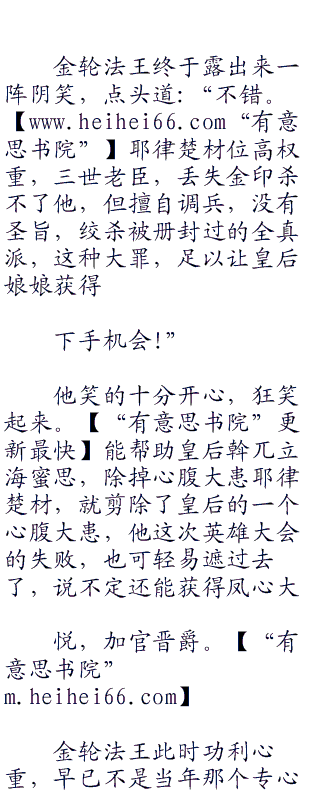 金轮法王终于露出来一
阵阴笑，点头道:“不错。
【www.heihei66.com“有意
思书院”】耶律楚材位高权
重，三世老臣，丢失金印杀
不了他，但擅自调兵，没有
圣旨，绞杀被册封过的全真
派，这种大罪，足以让皇后
娘娘获得
下手机会!”
他笑的十分开心，狂笑
起来。【“有意思书院”更
新最快】能帮助皇后斡兀立
海蜜思，除掉心腹大患耶律
楚材，就剪除了皇后的一个
心腹大患，他这次英雄大会
的失败，也可轻易遮过去
了，说不定还能获得凤心大
悦，加官晋爵。【“有
意思书院”
m.heihei66.com】
金轮法王此时功利心
重，早已不是当年那个专心